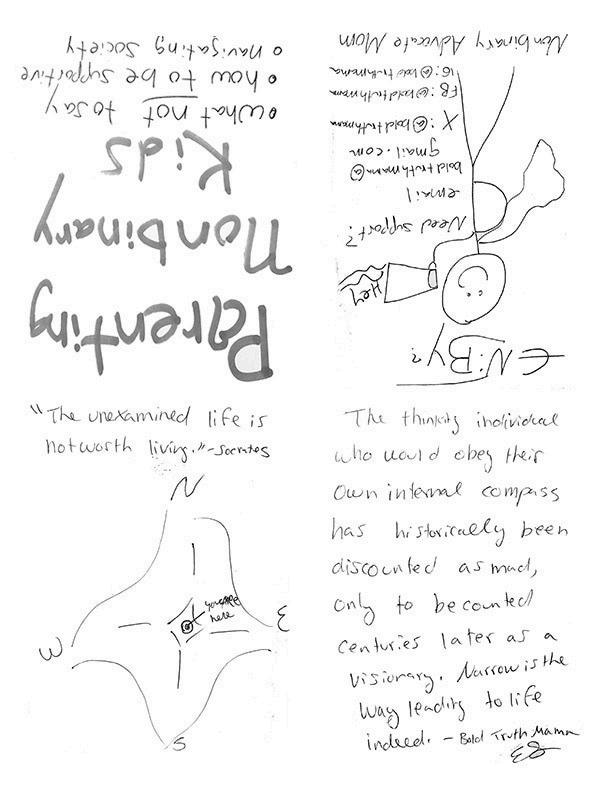 Parenting
Nonbinary
Kids
•what not to say
•how to be supportive
•navigating society
ENiBy?
Hey
Need support?
email
boldtruthmama@
gmail.com
X: @boldtruthmama
FB: @boldtruthmama
IG: @boldtruthmama
Nonbinary Advocate Mom
"The unexamined life is
not worth living."-Socrates
N
you are
here
W
E
S
The thinking individual
who would obey their
own internal compass
has historically been
discounted as mad,
only to be counted
centuries later as a
visionary. Narrow is the
way leading to life
indeed. - Bold Truth Mama